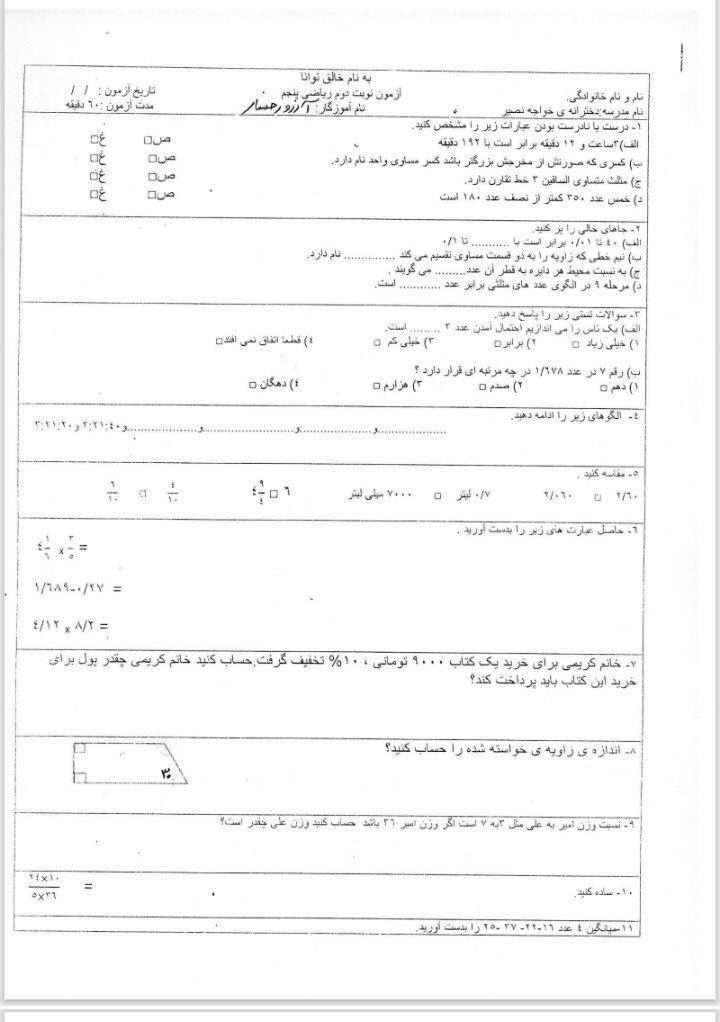 به نام خالق توانا
نام و نام خانوادگی: آزمون نوبت دوم ریاضی پنجم تاریخ آزمون : / /
نام مدرسه:دخترانه ی خواجه نصیر نام آموزگار: مدت آزمون :۶۰ دقیقه
۱- درست یا نادرست بودن عبارات زیر را مشخص کنید.
الف)۳ساعت و ۱۲ دقیقه برابر است با ۱۹۲ دقیقه ص□ غ□
ب) کسری که صورتش از مخرجش بزرگتر باشد کسر مساوی واحد نام دارد. ص□ غ□
ج) مثلث متساوی الساقین ۳ خط تقارن دارد. ص□ غ□
د) خمس عدد ۳۵۰ کمتر از نصف عدد ۱۸۰ است ص□ غ□
۲- جاهای خالی را پر کنید.
الف) ۴۰ تا ۰/۰۱ برابر است با ........... تا ۰/۱
ب) نیم خطی که زاویه را به دو قسمت مساوی تقسیم می کند ............... نام دارد.
ج) به نسبت محیط هر دایره به قطر آن عدد......... می گویند .
د) مرحله ۹ در الگوی عدد های مثلثی برابر عدد ............ است.
۳- سوالات تستی زیر را پاسخ دهید.
الف) یک تاس را می اندازیم احتمال آمدن عدد ۳ ......... است.
۱) خیلی زیاد □ ۲) برابر□ ۳) خیلی کم □ ۴) قطعا اتفاق نمی افتد□
ب) رقم ۷ در عدد ۱/۶۷۸ در چه مرتبه ای قرار دارد ؟
۱) دهم □ ۲) صدم □ ۳) هزارم □ ۴) دهگان □
۴- الگوهای زیر را ادامه دهید.
۳:۲۱:۲۰ و ۳:۲۱:۴۰و....................و........................و....................و....................
۵- مقاسه کنید .
۲/۶۰ □ ۲/۰۶۰ ۰/۷ لیتر □ ۷۰۰۰ میلی لیتر ۶ □ ۴ ۹/۴ ۴/۱۰ □ ۶/۱۰
۶- حاصل عبارت های زیر را بدست آورید .
۴ ۱/۶ × ۳/۵ =
۱/۶۸۹-۰/۲۷ =
۴/۱۲ × ۸/۲ =
۷- خانم کریمی برای خرید یک کتاب ۹۰۰۰ تومانی ، ۱۰% تخفیف گرفت.حساب کنید خانم کریمی چقدر پول برای
خرید این کتاب باید پرداخت کند؟
۸- اندازه ی زاویه ی خواسته شده را حساب کنید؟
۹- نسبت وزن امیر به علی مثل ۳به ۷ است اگر وزن امیر ۳۶ باشد حساب کنید وزن علی چقدر است؟
۱۰- ساده کنید. ۲۴×۱۰/۵×۳۶ =
۱۱-میانگین ۴ عدد ۱۶-۲۲- ۳۷ -۲۵ را بدست آورید.